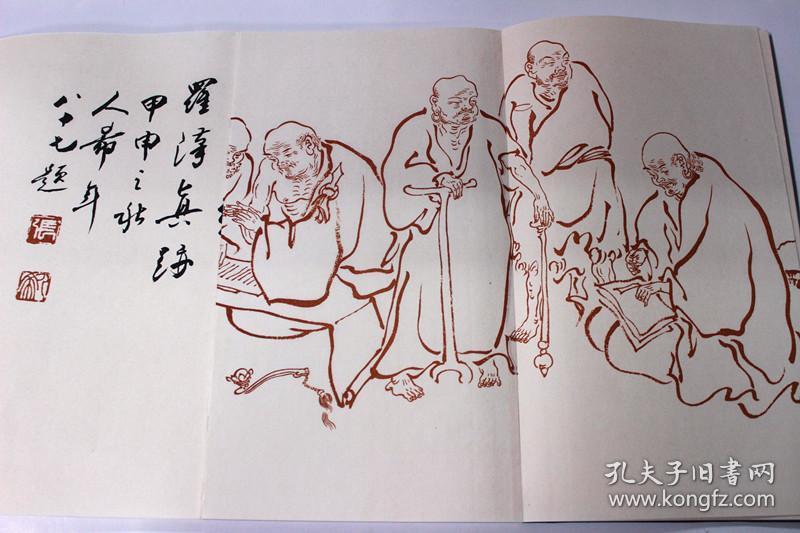 羅漢真跡
甲申之秋
人希年
八十七題
張
孔夫子旧书网
www.kongfz.com